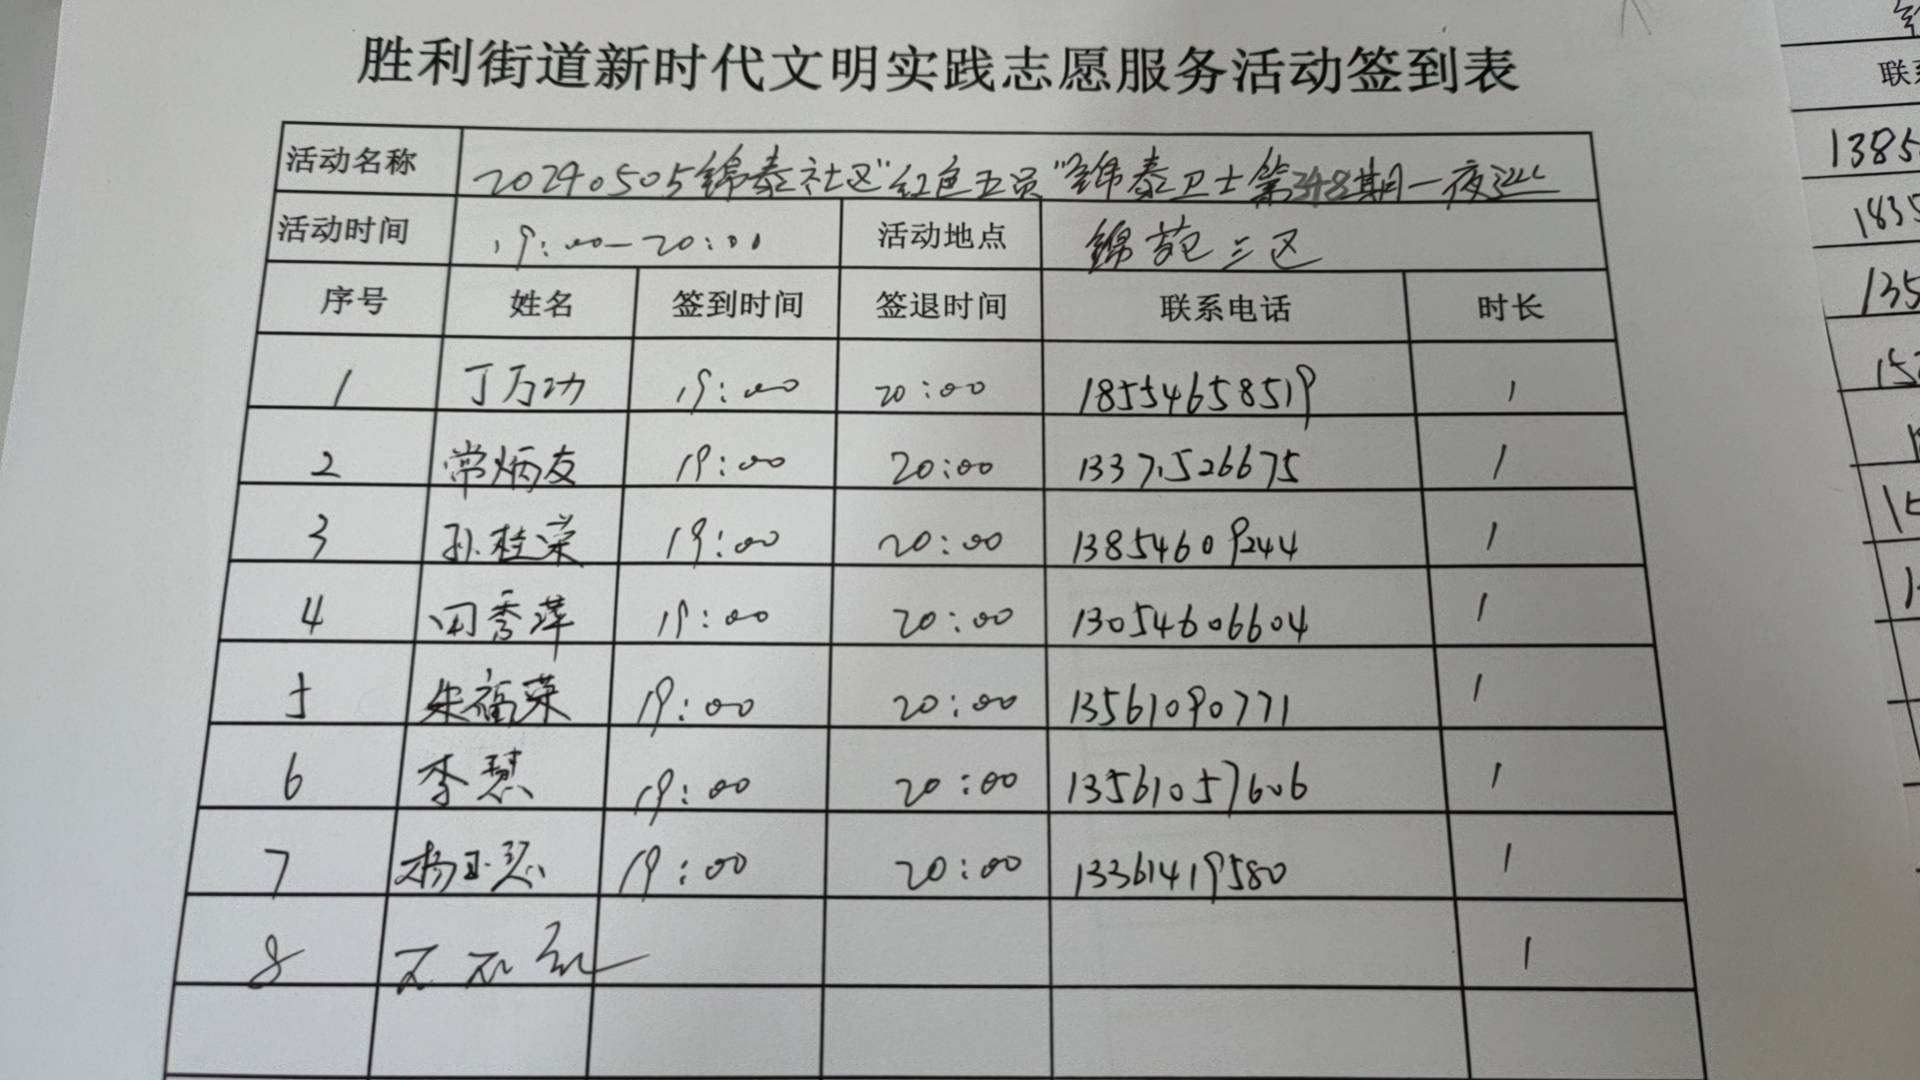 胜利街道新时代文明实践志愿服务活动签到表
活动名称 20240505锦泰社区"红色五员"锦泰卫士第348期一夜巡
活动时间 19:00-20:00 活动地点 锦苑三区
序号 姓名 签到时间 签退时间 联系电话 时长
1 丁万功 19:00 20:00 18554658519 1
2 常炳友 19:00 20:00 13371526675 1
3 孙桂荣 19:00 20:00 13854609244 1
4 田秀萍 19:00 20:00 13054606604 1
5 朱福荣 19:00 20:00 13561090771 1
6 李慧 19:00 20:00 13561057606 1
7 杨玉 19:00 20:00 13361419580 1
8 1
联系
1385
1835
135
152
15